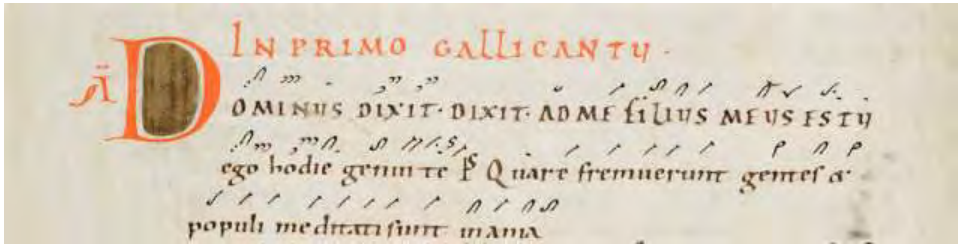 IN PRIMO GALLICANTU.
Ā DOMINUS DIXIT· DIXIT· AD ME FILIUS MEUS ES TU
ego hodie genui te Ps Quare fremuerunt gentes &
populi meditati sunt inania